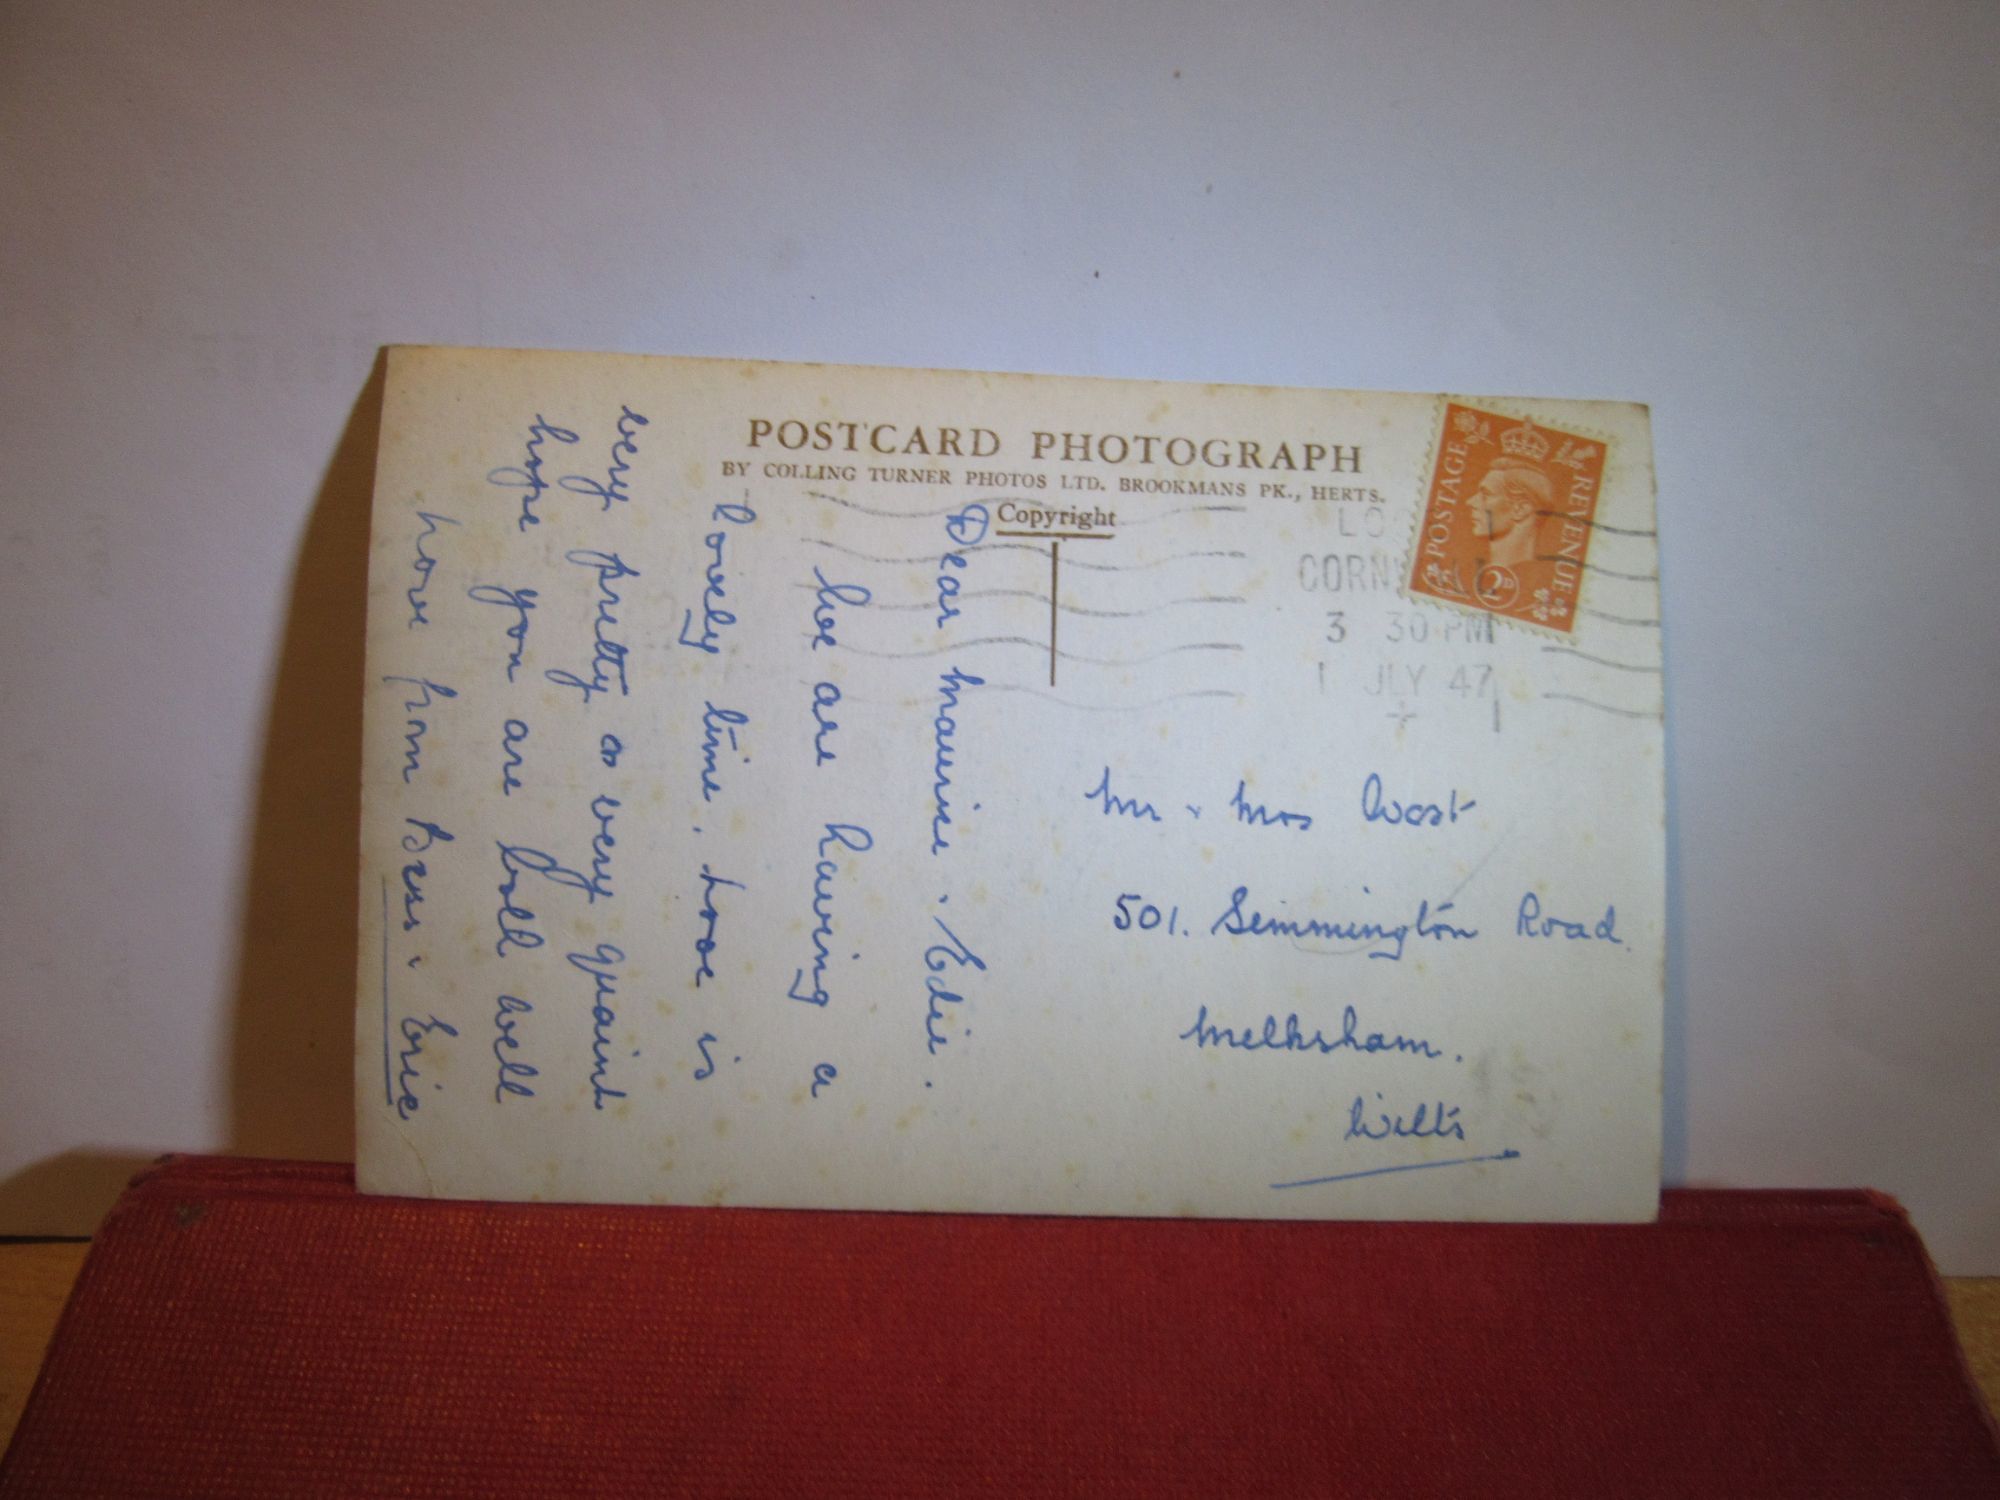 POSTCARD PHOTOGRAPH
BY COLLING TURNER PHOTOS LTD. BROOKMANS PK., HERTS.
Copyright
POSTAGE
REVENUE
2D
LO
CORNWALL
3 30 PM
1 JLY 47
Dear Maurice. Edie.
We are having a
lovely time. Looe is
very pretty & very quaint
hope you are both well
Love from Bess & Eric
Mr & Mrs West
501. Semmington Road.
Melksham.
Wilts